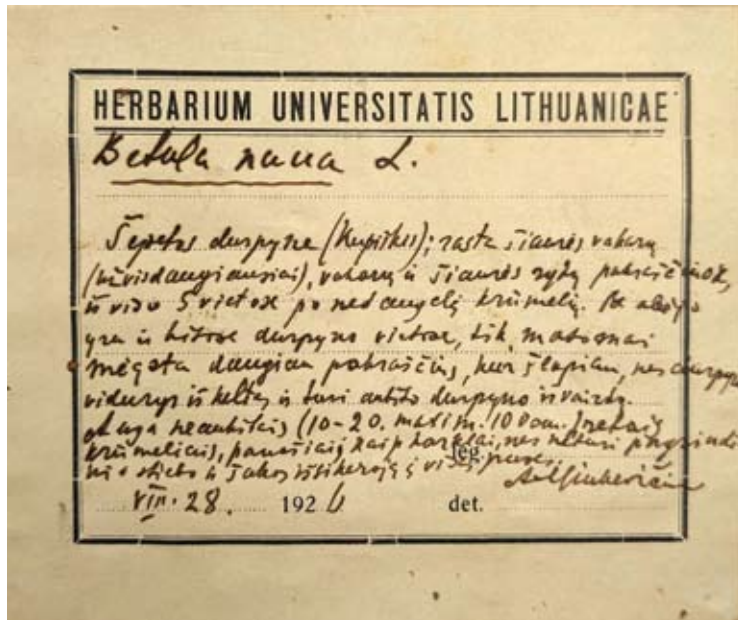 HERBARIUM UNIVERSITATIS LITHUANICAE
Betula nana L.
Šepetos durpyne (Kupiškis); rasta šiaurės vakarų
(užvisdaugiausiai), vakarų ir šiaurės rytų pakraščiuose,
iš viso 5 vietose po nedaugelį krūmelių. Be abejo
yra ir kitose durpyno vietose, tik, matomai
mėgsta daugiau pakraščius, kur šlapiau, nes durpyno
vidurys iškeltas ir turi aukšto durpyno išvaizdą.
Auga neaukštais (10-20. maxim. 100 cm.) retais
krūmeliais, panašiais kaip karklai, nes neturi pagrindi
nio stiebo ir šakos išsikeroję į visas puses.
leg.
VIII. 28. 1926 det.